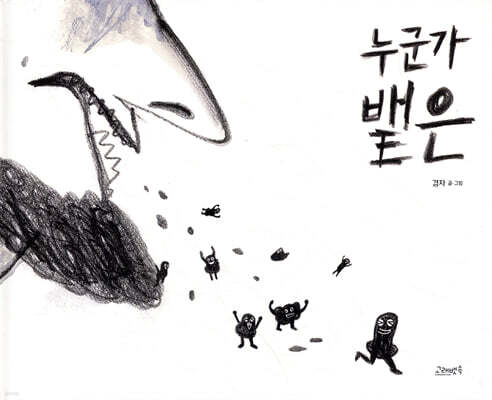 누군가
뱉은
경자 글·그림
고래뱃속